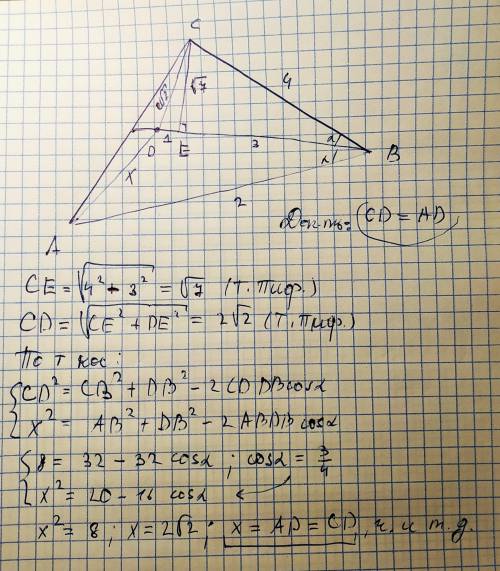 C
2√2
√7
4
D 1 E 3 α
α B
X
2
A
Док-ть: CD = AD
CE = √(4² - 3²) = √7 (Т. Пиф.)
CD = √(CE² + DE²) = 2√2 (Т. Пиф.)
По т кос:
{ CD² = CB² + DB² - 2CDDBcosα
x² = AB² + DB² - 2ABDBcosα
{ 8 = 32 - 32 cosα ; cosα = 3/4
x² = 20 - 16 cosα ←
x² = 8 ; x = 2√2 ; x = AD = CD, ч. и т.д.